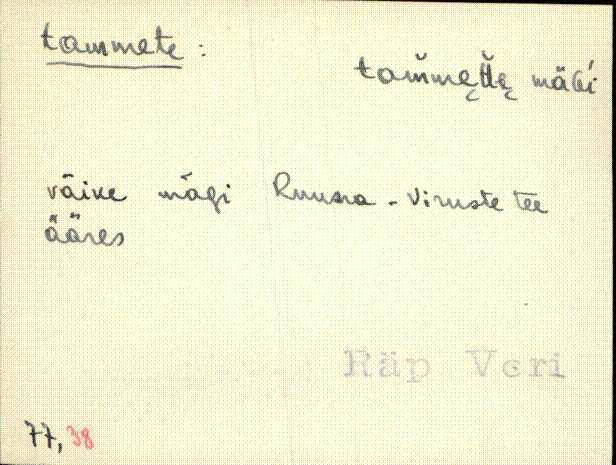 tammete :
tam̆mętt̆ę mäGi
väike mägi Ruusa - Viruste tee
ääres
Räp Veri
77, 38